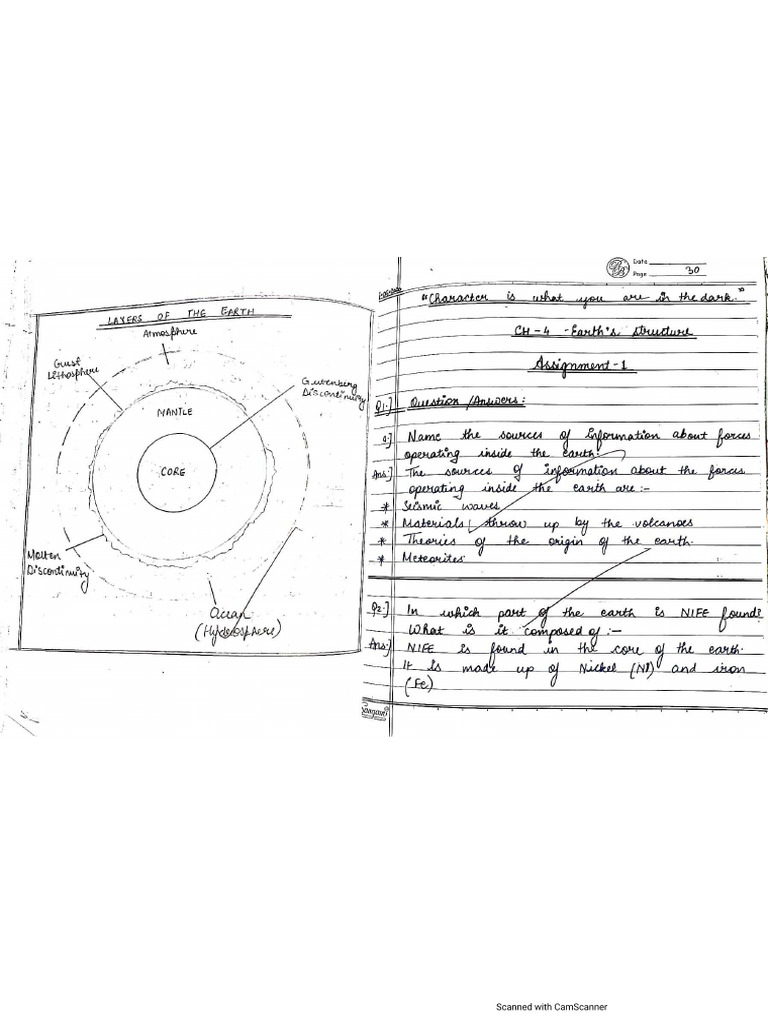 LAYERS OF THE EARTH
Atmosphere
Crust
Lithosphere
Gutenbing
Discontinuity
MANTLE
CORE
Molten
Discontinuity
Ocean
(Hydrosphere)
Date
Page 30
"Character is what you are in the dark."
CH-4 - Earth's structure
Assignment-1
Q1.] Question/Answers:
a.] Name the sources of information about forces
operating inside the earth.
Ans:] The sources of information about the forces
operating inside the earth are:-
* Seismic waves
* Materials throw up by the volcanoes
* Theories of the origin of the earth.
* Meteorites
Q2.] In which part of the earth is NIFE found?
What is it composed of:-
Ans:] NIFE is found in the core of the earth.
It is made up of Nickel (NI) and iron
(Fe)
Scanned with CamScanner